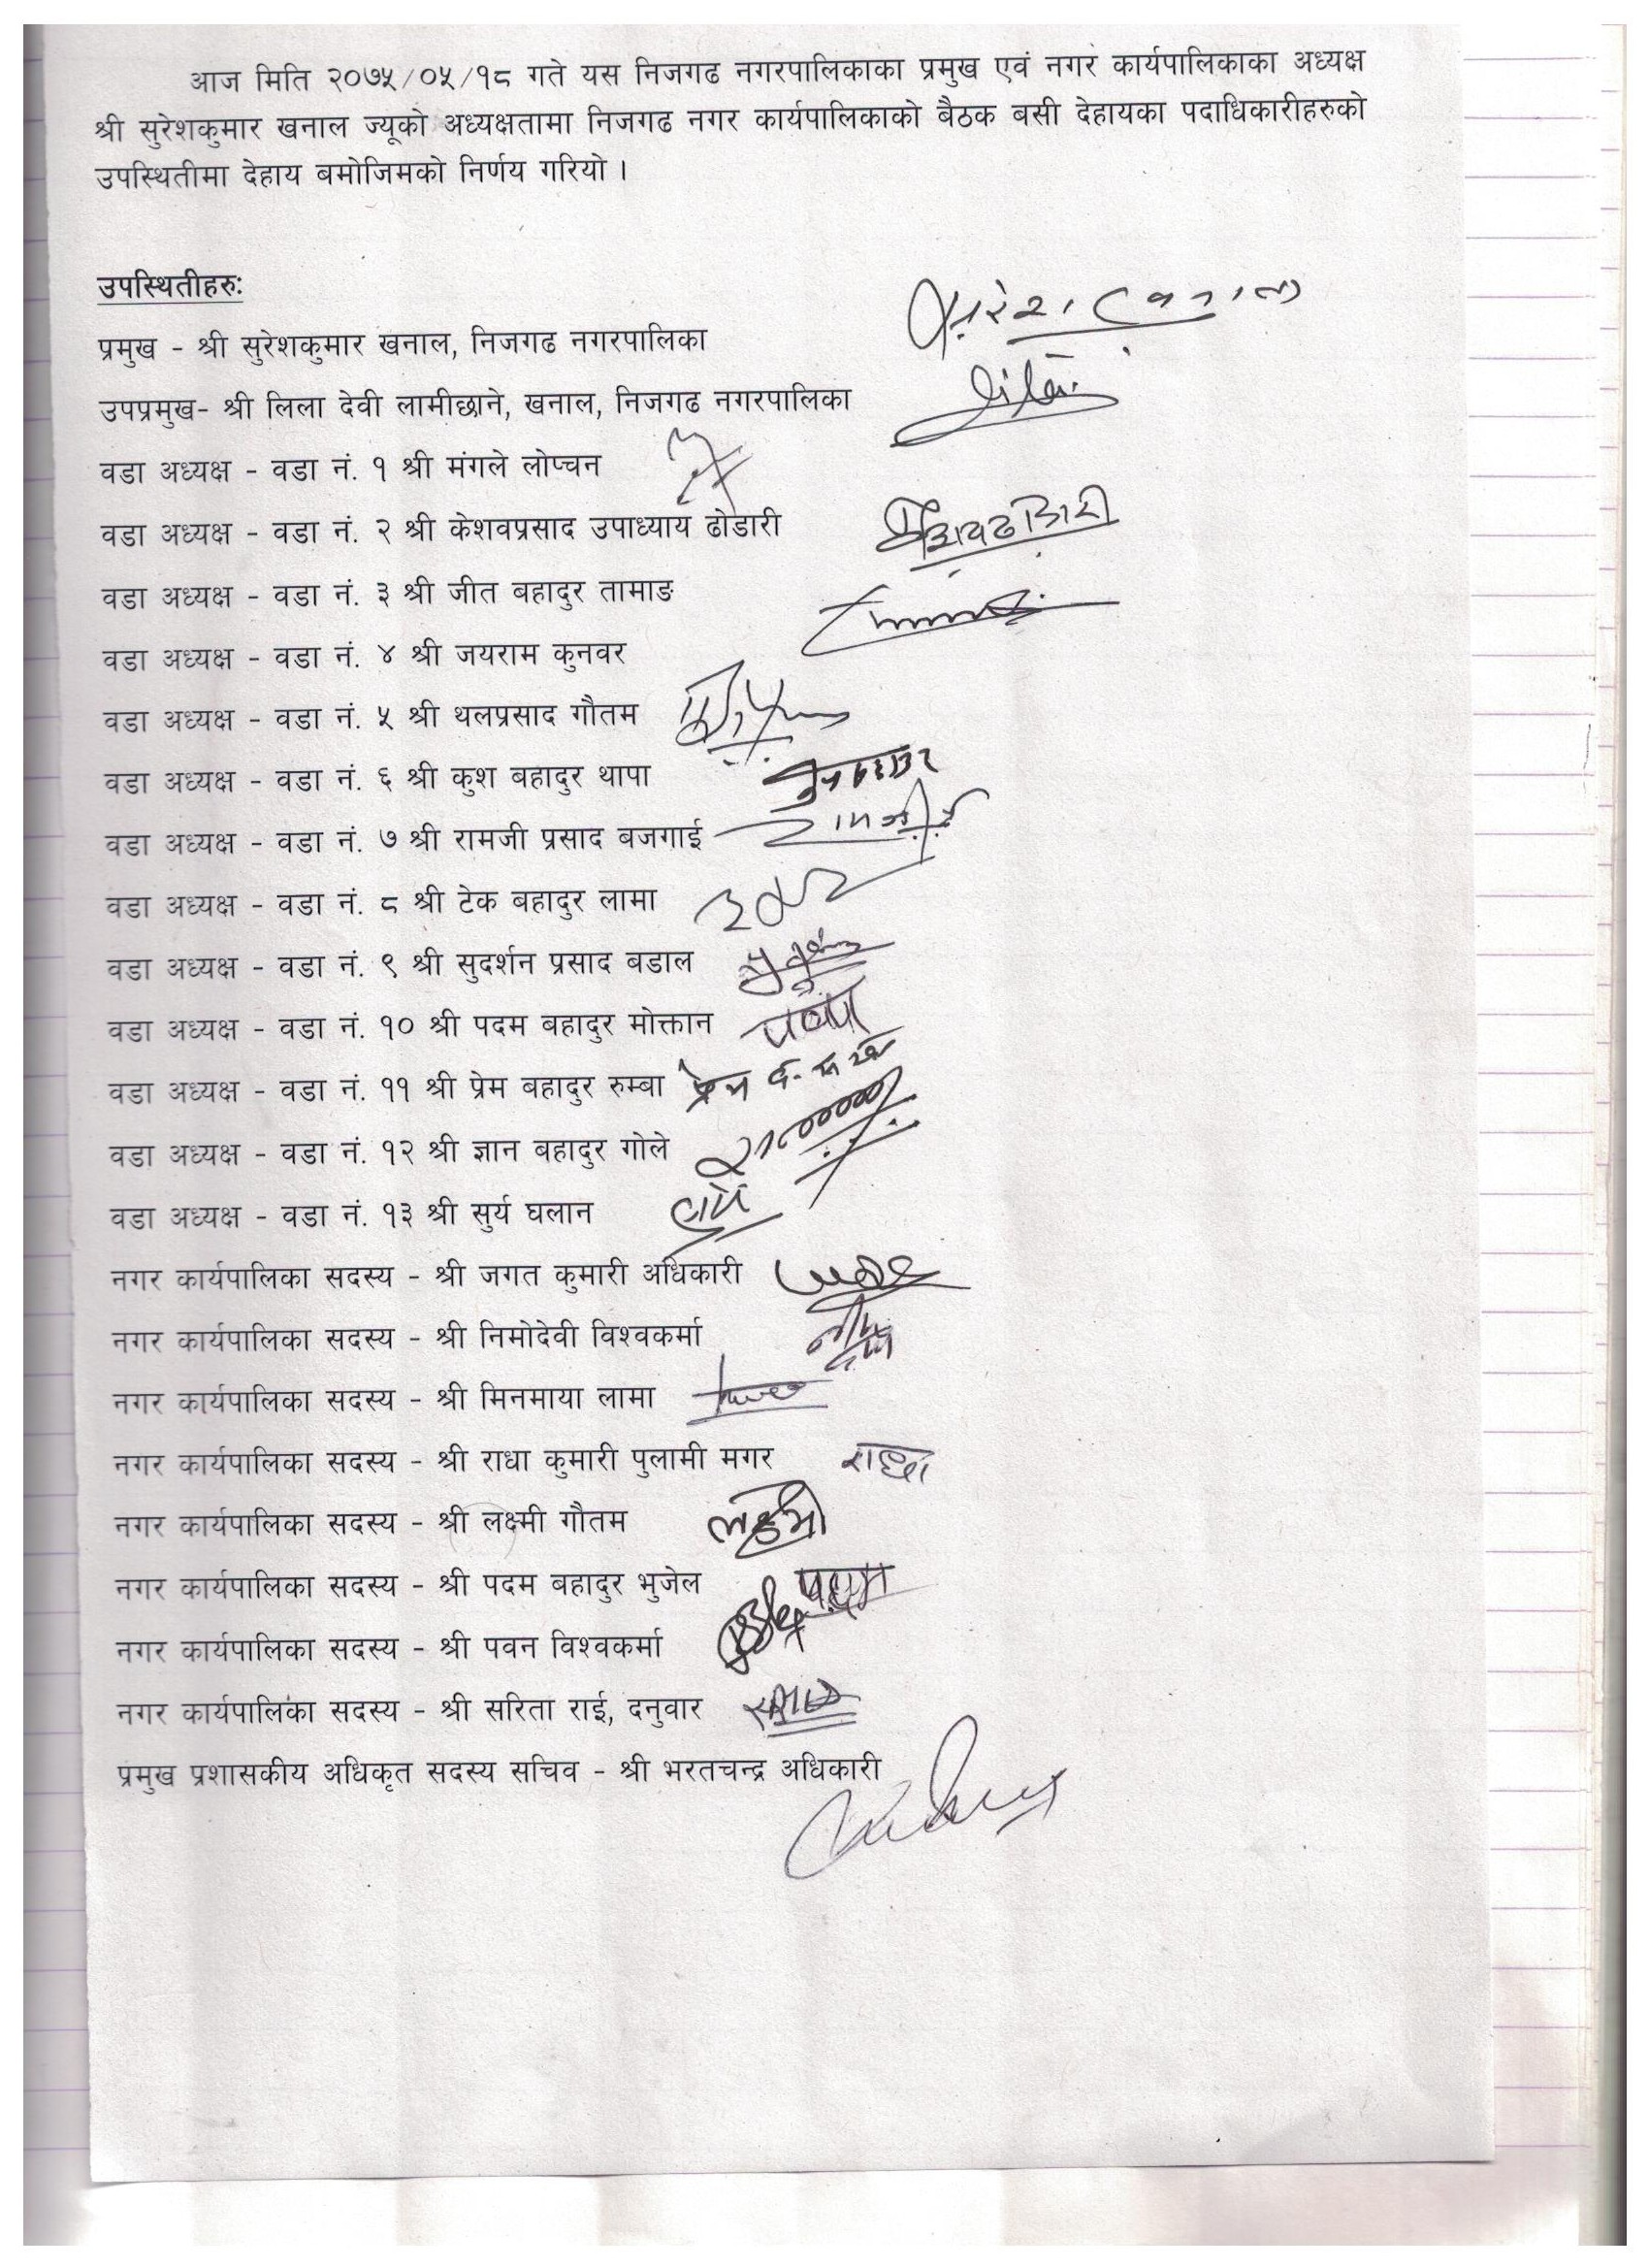 आज मिति २०७५/०५/१८ गते यस निजगढ नगरपालिकाका प्रमुख एवं नगर कार्यपालिकाका अध्यक्ष
श्री सुरेशकुमार खनाल ज्यूको अध्यक्षतामा निजगढ नगर कार्यपालिकाको बैठक बसी देहायका पदाधिकारीहरुको
उपस्थितीमा देहाय बमोजिमको निर्णय गरियो ।
उपस्थितीहरुः
प्रमुख - श्री सुरेशकुमार खनाल, निजगढ नगरपालिका
उपप्रमुख- श्री लिला देवी लामीछाने, खनाल, निजगढ नगरपालिका
वडा अध्यक्ष - वडा नं. १ श्री मंगले लोप्चन
वडा अध्यक्ष - वडा नं. २ श्री केशवप्रसाद उपाध्याय ढोडारी
वडा अध्यक्ष - वडा नं. ३ श्री जीत बहादुर तामाङ
वडा अध्यक्ष - वडा नं. ४ श्री जयराम कुनवर
वडा अध्यक्ष - वडा नं. ५ श्री थलप्रसाद गौतम
वडा अध्यक्ष - वडा नं. ६ श्री कुश बहादुर थापा
वडा अध्यक्ष - वडा नं. ७ श्री रामजी प्रसाद बजगाई
वडा अध्यक्ष - वडा नं. ८ श्री टेक बहादुर लामा
वडा अध्यक्ष - वडा नं. ९ श्री सुदर्शन प्रसाद बडाल
वडा अध्यक्ष - वडा नं. १० श्री पदम बहादुर मोक्तान
वडा अध्यक्ष - वडा नं. ११ श्री प्रेम बहादुर रुम्बा
वडा अध्यक्ष - वडा नं. १२ श्री ज्ञान बहादुर गोले
वडा अध्यक्ष - वडा नं. १३ श्री सुर्य घलान
नगर कार्यपालिका सदस्य - श्री जगत कुमारी अधिकारी
नगर कार्यपालिका सदस्य - श्री निमोदेवी विश्वकर्मा
नगर कार्यपालिका सदस्य - श्री मिनमाया लामा
नगर कार्यपालिका सदस्य - श्री राधा कुमारी पुलामी मगर राधा
नगर कार्यपालिका सदस्य - श्री लक्ष्मी गौतम लक्ष्मी
नगर कार्यपालिका सदस्य - श्री पदम बहादुर भुजेल
नगर कार्यपालिका सदस्य - श्री पवन विश्वकर्मा
नगर कार्यपालिका सदस्य - श्री सरिता राई, दनुवार
प्रमुख प्रशासकीय अधिकृत सदस्य सचिव - श्री भरतचन्द्र अधिकारी